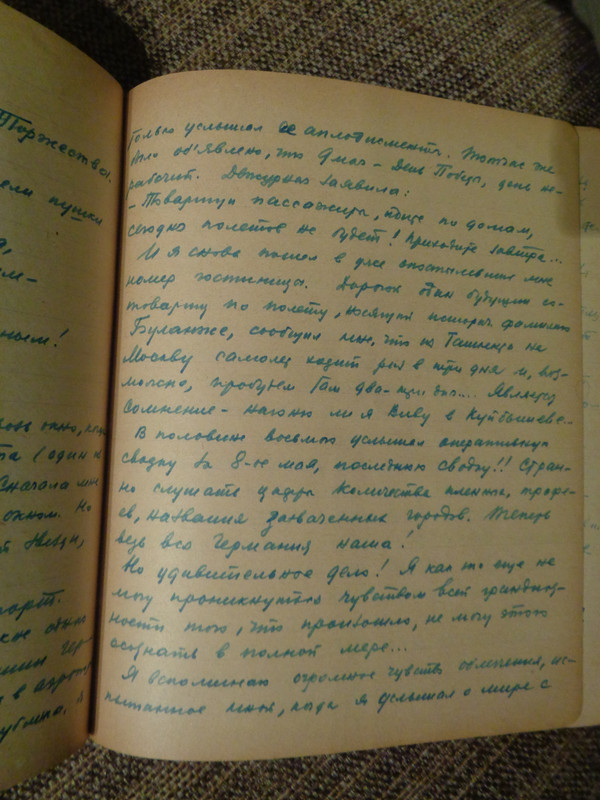 Торжества.
ели пушки
д,
ем-
ным!
Сначала мне
окном. Но
й звезды,
порт.
в аэропорт
только услышал аплодисменты. Тотчас же
было объявлено, что 9 мая - День Победы, день не-
рабочий. Дежурная заявила:
- Товарищи пассажиры, идите по домам,
сегодня полетов не будет! Приходите завтра...
И я снова пошел в уже опостылевший мне
номер гостиницы. Дорогой один будущий
товарищ по полету, носящий фамилию
Буланже, сообщил мне, что из Ташкента на
Москву самолет ходит раз в три дня и, воз-
можно, пробудем там два-три дня... Явилось
сомнение - нагоню ли я Виву в Куйбышеве..
В половине восьмого услышал оперативную
сводку за 8-ое мая, последнюю сводку!! Стран-
но слушать цифры количества пленных, трофе-
ев, названия захваченных городов. Теперь
ведь вся Германия наша!
Но удивительное дело! Я как то еще не
могу проникнуться чувством всей грандиоз-
ности того, что произошло, не могу этого
осознать в полной мере...
Я вспоминаю огромное чувство облегчения, ис-
пытанное мной, когда я услышал о мире с